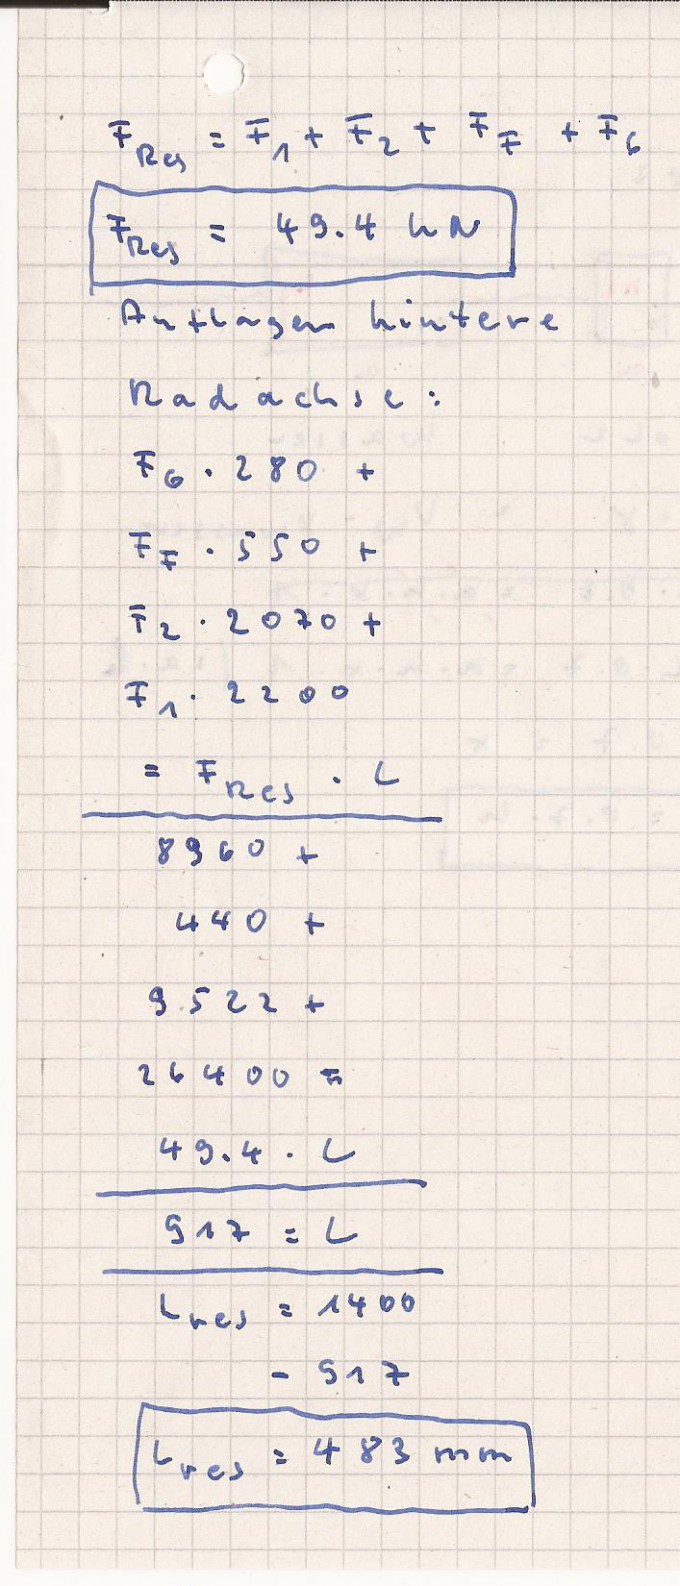 F_Res = F_1 + F_2 + F_F + F_G
F_Res = 49.4 kN
Auflager hintere
Radachse:
F_G · 280 +
F_F · 550 +
F_2 · 2070 +
F_1 · 2200
= F_Res · L
8960 +
440 +
9522 +
26400 =
49.4 · L
917 = L
L_res = 1400
- 917
L_res = 483 mm